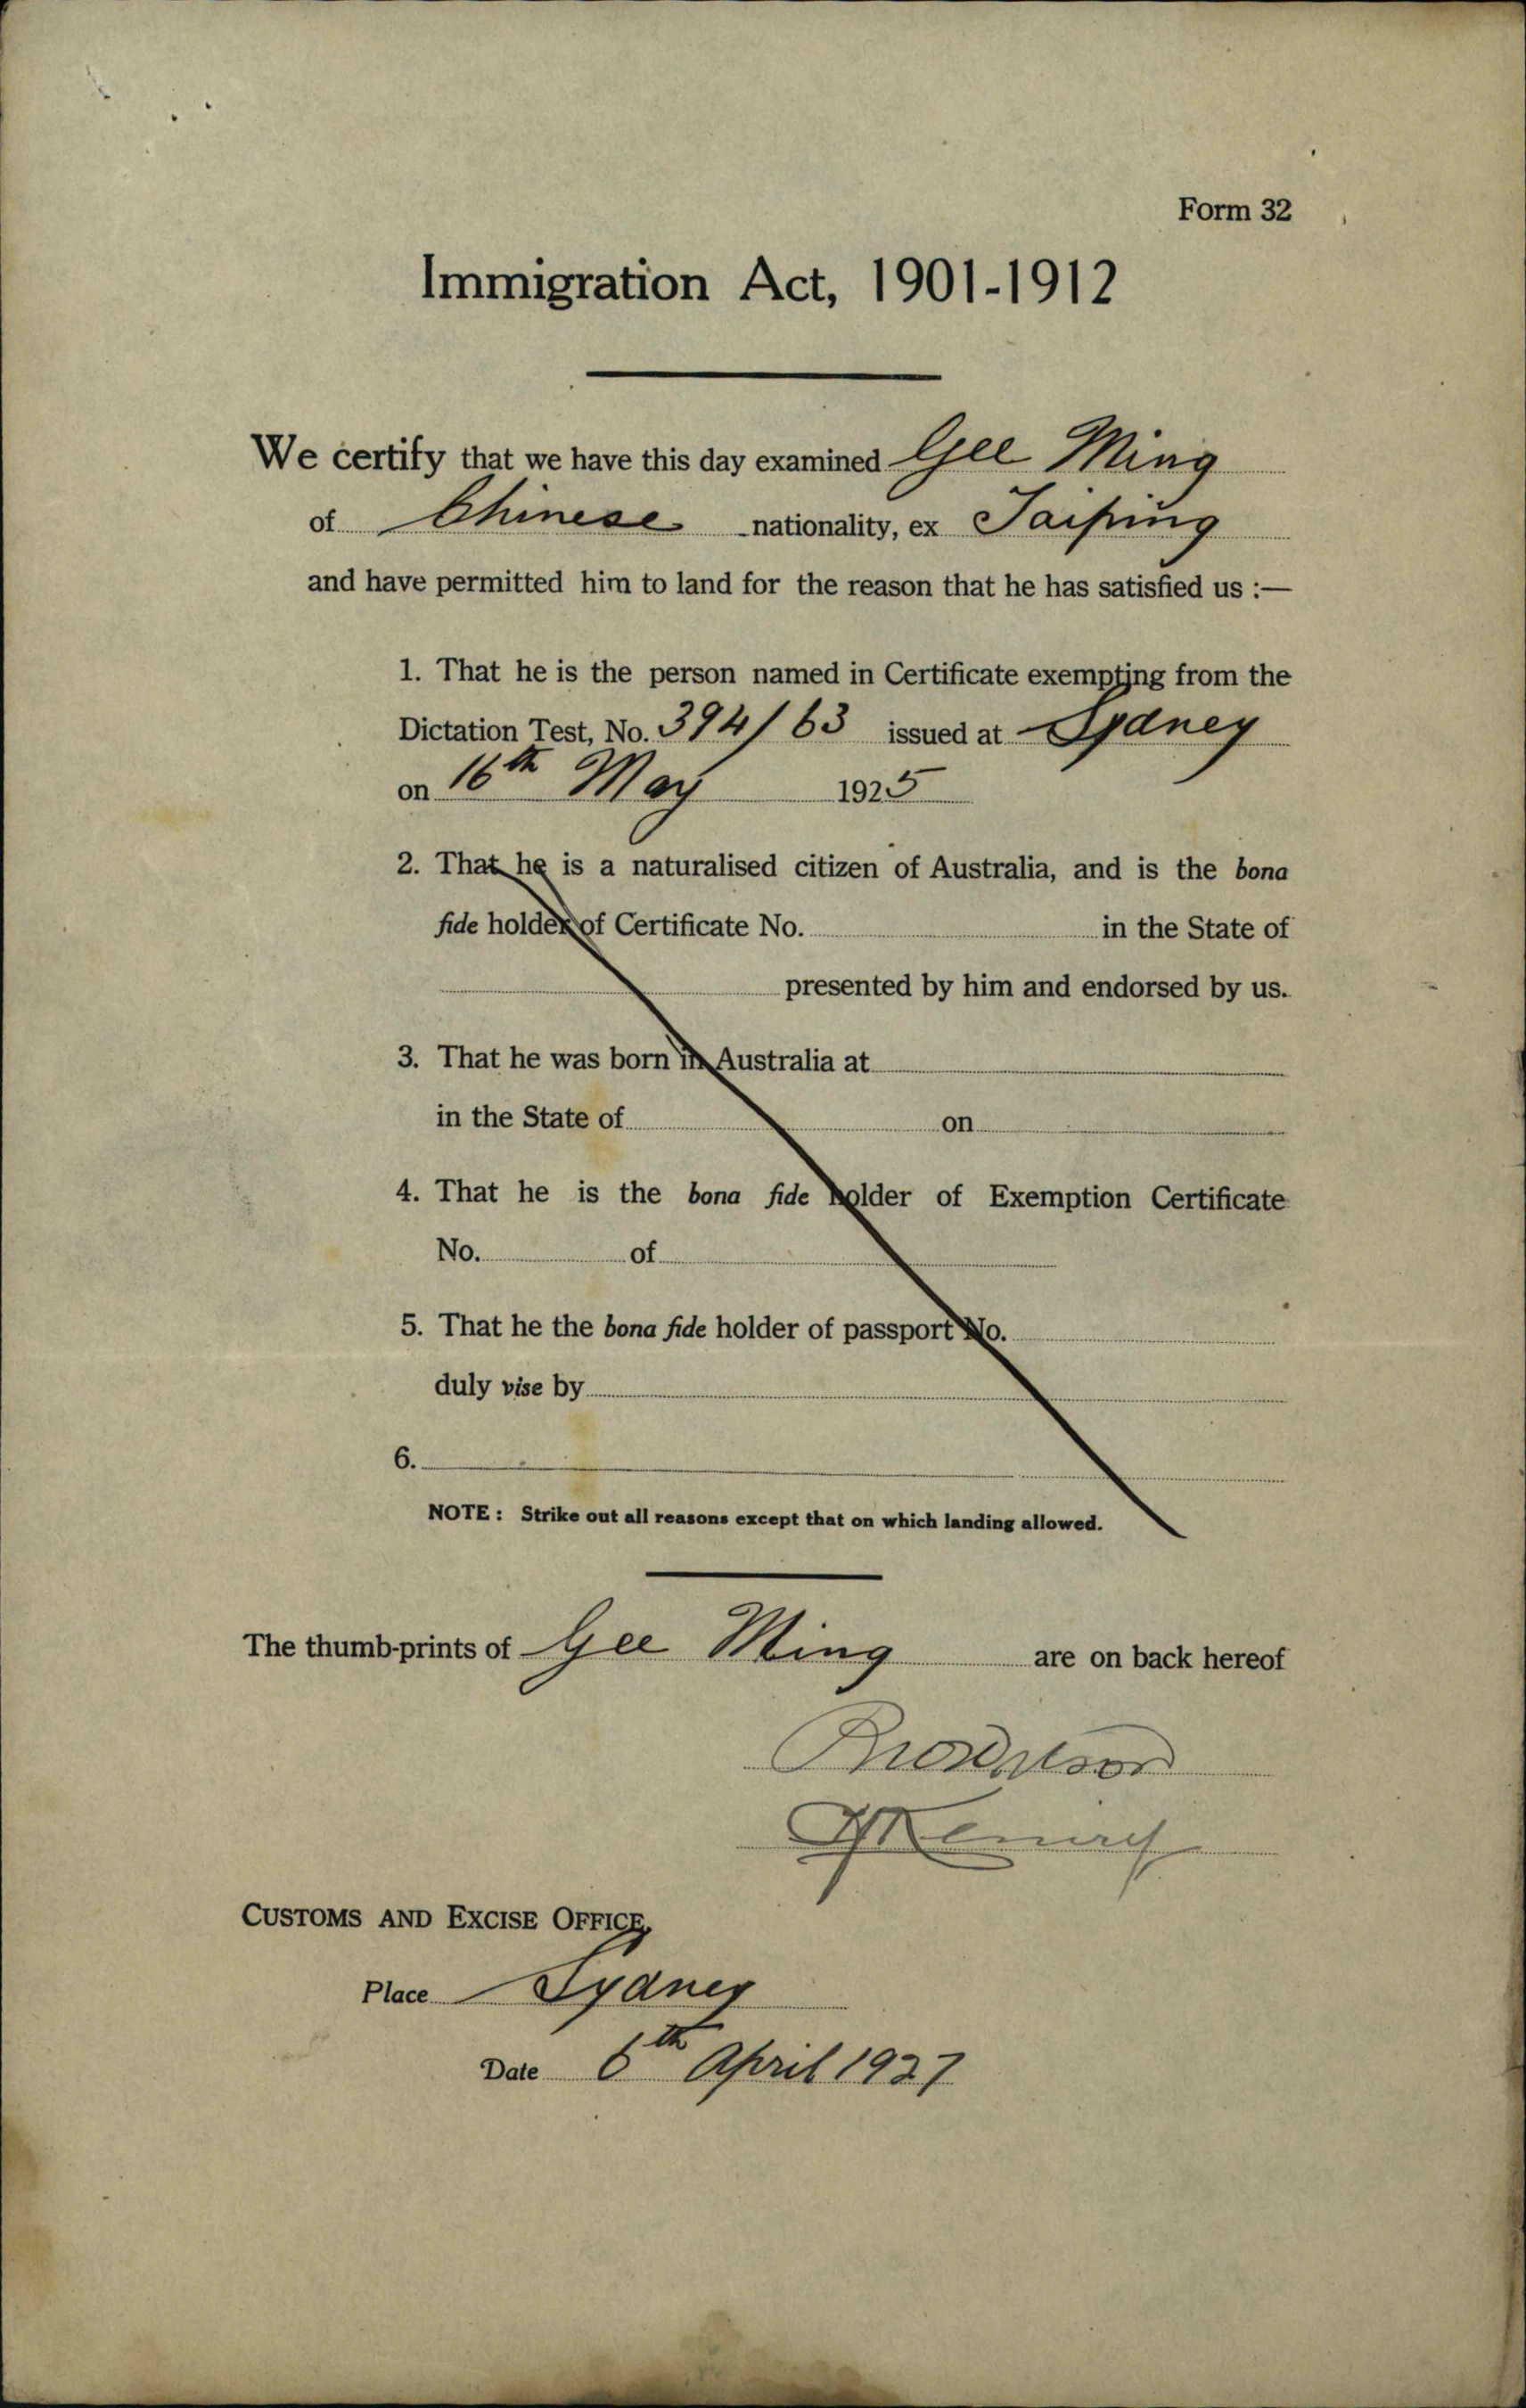 Form 32
Immigration Act, 1901-1912
We certify that we have this day examined Gee Ming
of Chinese nationality, ex Taiping
and have permitted him to land for the reason that he has satisfied us :—
1. That he is the person named in Certificate exempting from the
Dictation Test, No. 394/63 issued at Sydney
on 16th May 1925
2. That he is a naturalised citizen of Australia, and is the bona
fide holder of Certificate No. in the State of
presented by him and endorsed by us.
3. That he was born in Australia at
in the State of on
4. That he is the bona fide holder of Exemption Certificate
No. of
5. That he the bona fide holder of passport No.
duly vise by
6.
NOTE : Strike out all reasons except that on which landing allowed.
The thumb-prints of Gee Ming are on back hereof
CUSTOMS AND EXCISE OFFICE,
Place Sydney
Date 6th April 1927